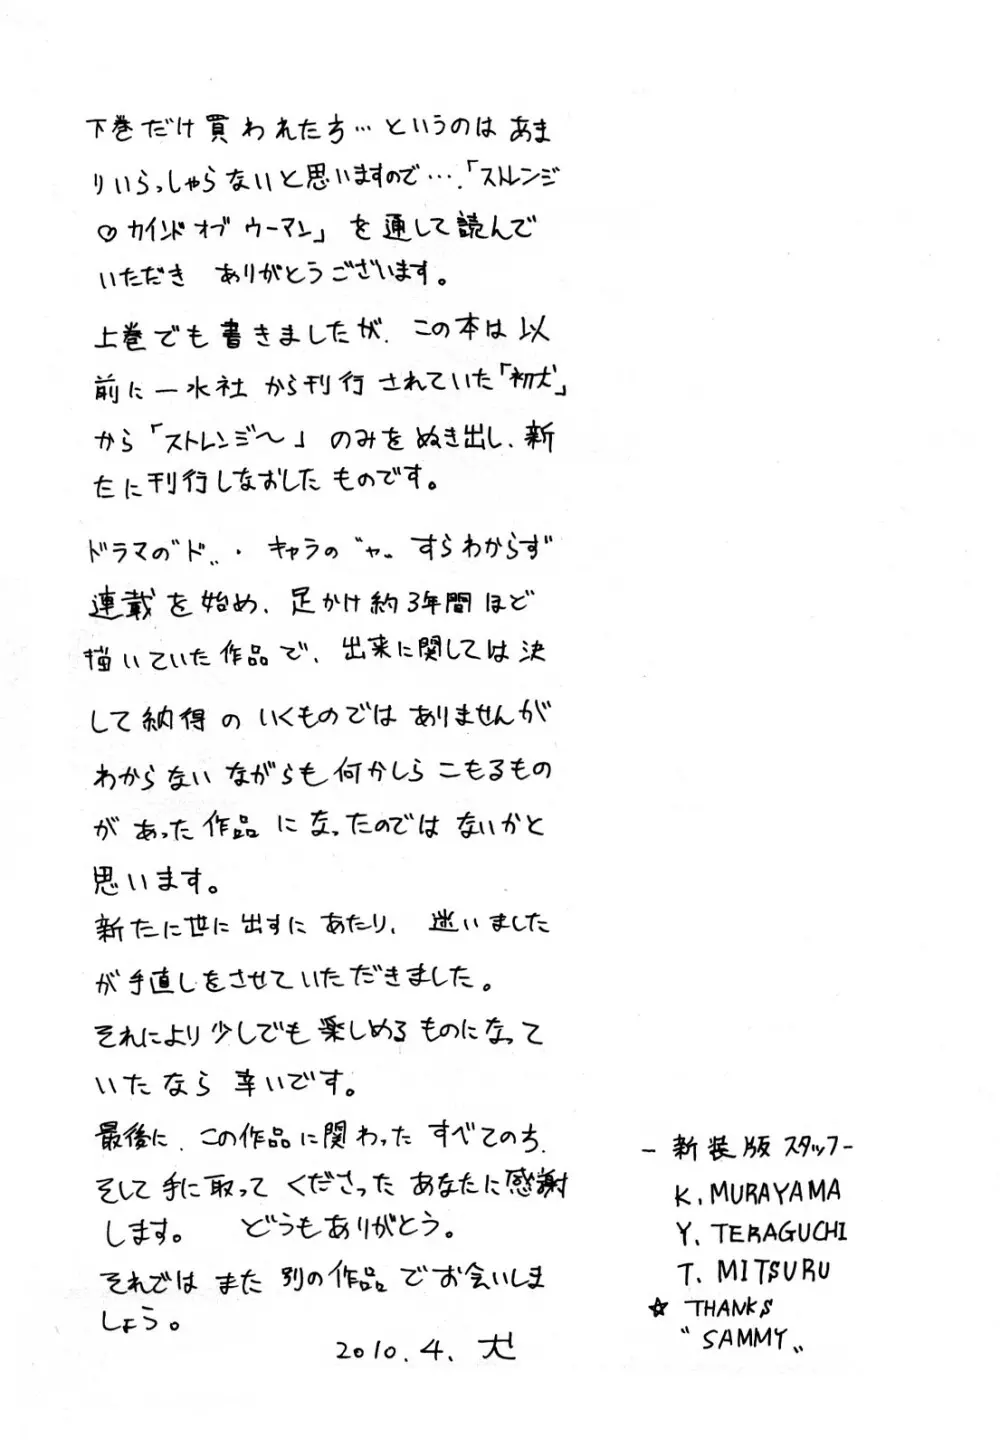 下巻だけ買われた方…というのはあま
りいらっしゃらないと思いますので…．「ストレンジ
♡カインドオブウーマン」を通して読んで
いただき ありがとうございます。
上巻でも書きましたが、この本は以
前に一水社から刊行されていた「初犬」
から「ストレンジ〜」のみをぬき出し、新
たに刊行しなおしたものです。
ドラマの〝ド〟・キャラの〝ャ〟すらわからず
連載を始め、足かけ約3年間ほど
描いていた作品で、出来に関しては決
して納得のいくものではありませんが
わからないながらも何かしらこもるもの
があった作品になったのではないかと
思います。
新たに世に出すにあたり、迷いました
が手直しをさせていただきました。
それにより少しでも楽しめるものになって
いたなら幸いです。
最後に、この作品に関わったすべての方、
そして手に取ってくださったあなたに感謝
します。 どうもありがとう。
それではまた別の作品でお会いしま
しょう。
2010.4. 犬
－新装版スタッフ－
K. MURAYAMA
Y. TERAGUCHI
T. MITSURU
☆ THANKS
〝SAMMY〟